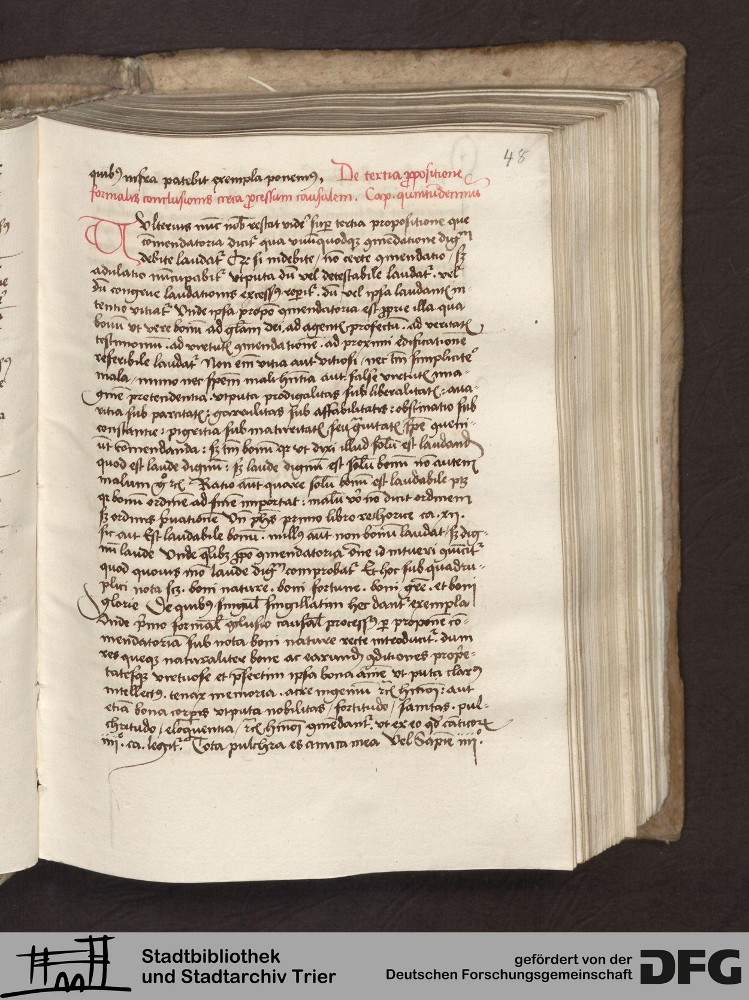 48
quib9 infra patebit exempla ponem9. De tertia propositione
formalis conclusionis circa processum causalem. Cap. quintudecimus
Ulterius nunc nob restat vide super tertia propositione que
comendatoria dicit qua unuquodqz comendatione dig
debite laudat Et si indebite / no certe comendatio / sz
adulatio nuncupabit utputa du vel detestabile laudat. vel
du congrue laudationis excess9 reperit. du vel ipsa laudantis in
tentio vitiat Unde ipsa propo comendatoria est proprie illa qua
bonu ut vere bonu ad glam dei. ad agentis profectu. ad veritatis
testimoniu. ad virtutis comendatione. ad proximi edificatione
referibile laudat Non em vitia aut vitiosi / nec tm simplicite
mala / immo nec spem mali hntia aut false virtutis ima-
gine pretendentia. utputa prodigalitas sub liberalitatis: ava-
ritia sub parcitatis: garrulitas sub affabilitatis: obstinatio sub
constantie: pigritia sub maturitatis seu gravitatis spe
ut comendanda: sz tm bonum qr ut dixi illud solu est laudand
quod est laude dignu: sz laude dignum est solu bonu no autem
malum Ratio aut quare solu bonu est laudabile
qr bonu ordine ad fine importat: malu vo no dicit ordinem
sz ordinis privatione Un phs primo libro rethorice ca. xii.
sic aut Est laudabile bonu. nullus aut non bonu laudat / sz dig-
nu laude Unde qlibz propo comendatoria
quod quovis mo laude dig comprobat Et hoc sub quadru-
plici nota scz. boni nature. boni fortune. boni gre. et boni
glorie De quib9 singul singillatim her dant exempla
Unde primo formal conclusio causal process9 per propone co-
mendatoria sub nota boni nature recte introducit. dum
res queqz naturaliter bone ac earundem conditiones propie-
tatesqz virtuose et presertim ipsa bona anime ut puta clar9
intellect9. tenax memoria. acre ingeniu hmoi: aut
etia bona corporis utputa nobilitas / fortitudo / sanitas. pul-
chritudo / eloquentia / hmoi comendant. ut ex eo qd canticor
iiii. ca. legit. Tota pulchra es amica mea Vel Sapie iiii.
Stadtbibliothek
und Stadtarchiv Trier
gefördert von der
Deutschen Forschungsgemeinschaft
DFG